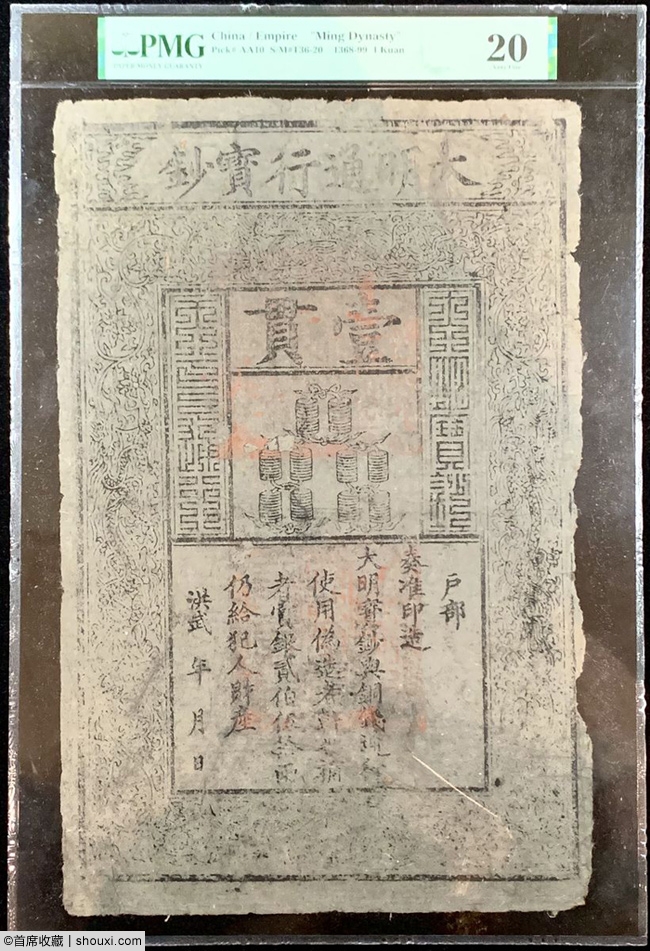 PMG
PAPER MONEY GUARANTY
China / Empire "Ming Dynasty"
Pick# AA10 S/M#T36-20 1368-99 1 Kuan
20
Very Fine
大明通行寶鈔
壹貫
戶部
奏准印造
大明寶鈔與銅錢通行
使用偽造者斬告捕
者賞銀貳伯伍拾兩
仍給犯人財產
洪武 年 月 日
©首席收藏 | shouxi.com